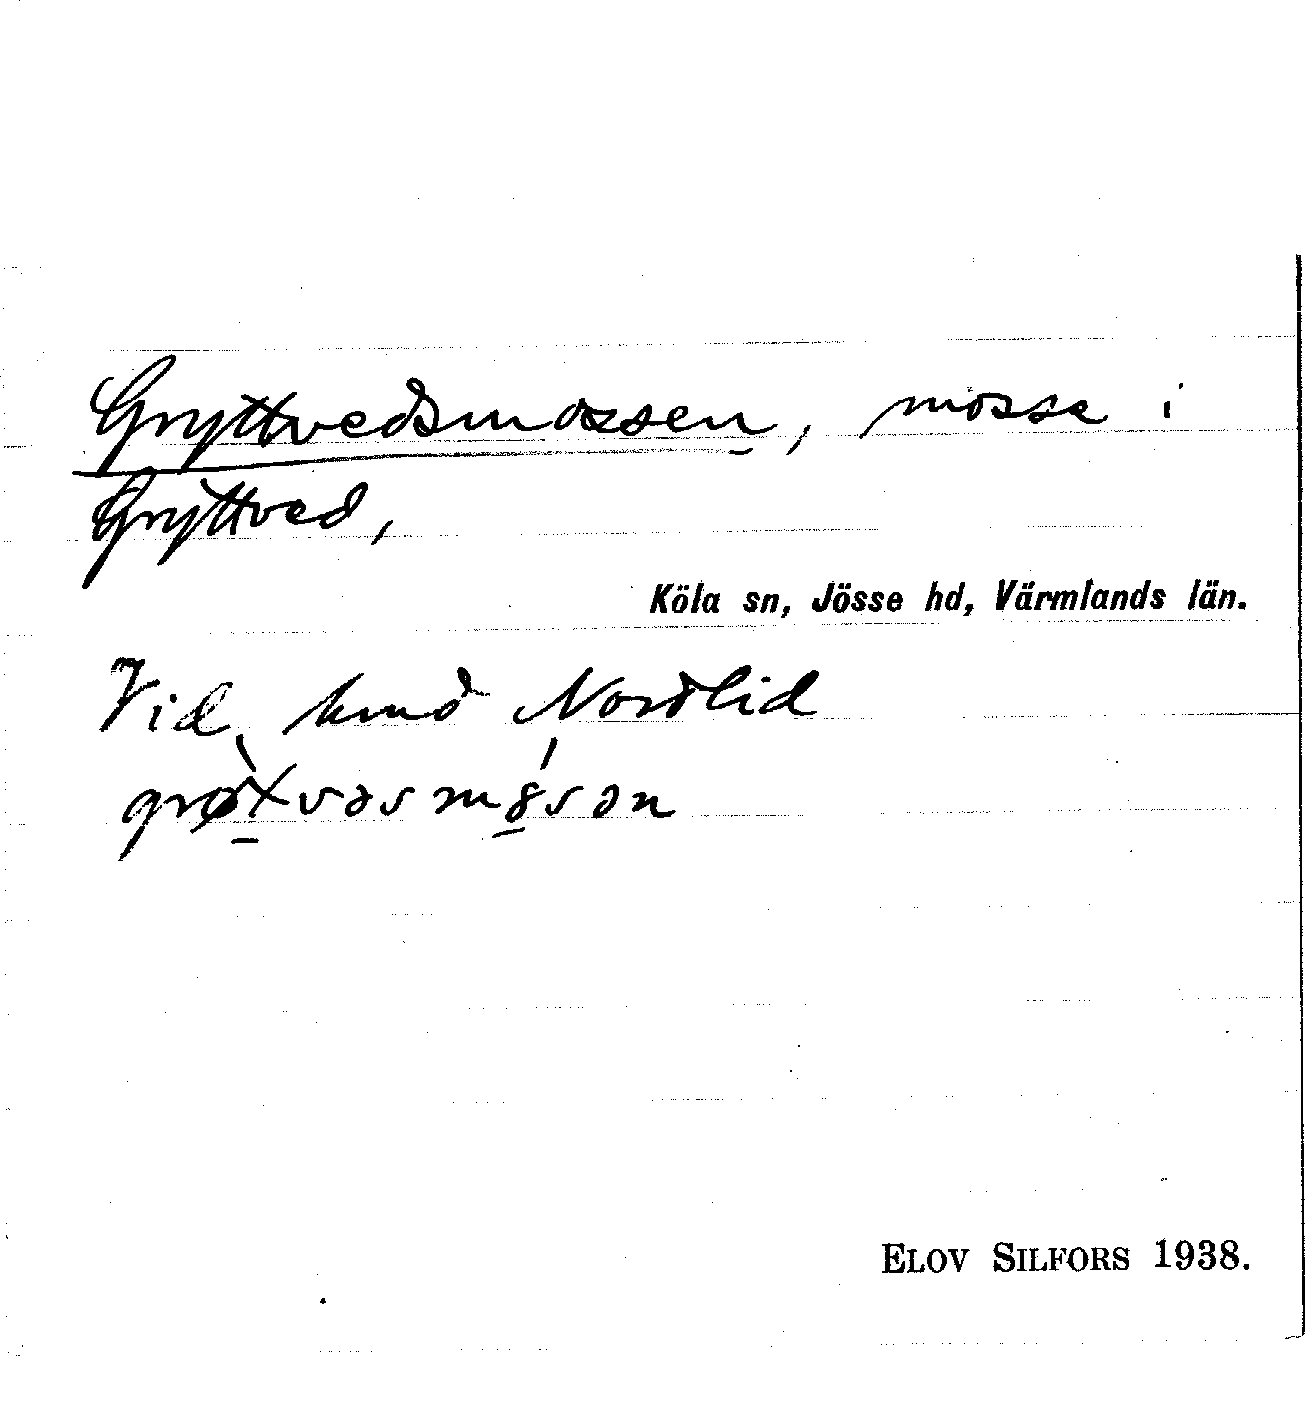 Gryttvedsmossen, mosse i
Gryttved,
Köla sn, Jösse hd, Värmlands län.
Vid hmd Nordlid
ELOV SILFORS 1938.